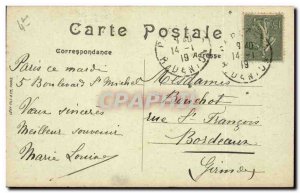 Carte Postale
Correspondance
Adresse
9 40
14 - 1
19
Paris ce mardi
5 Boulevard St Michel
Vœux sincères
Meilleur souvenir
Marie Louise
Mesdames
Bouchot
rue St François
Bordeaux
Gironde